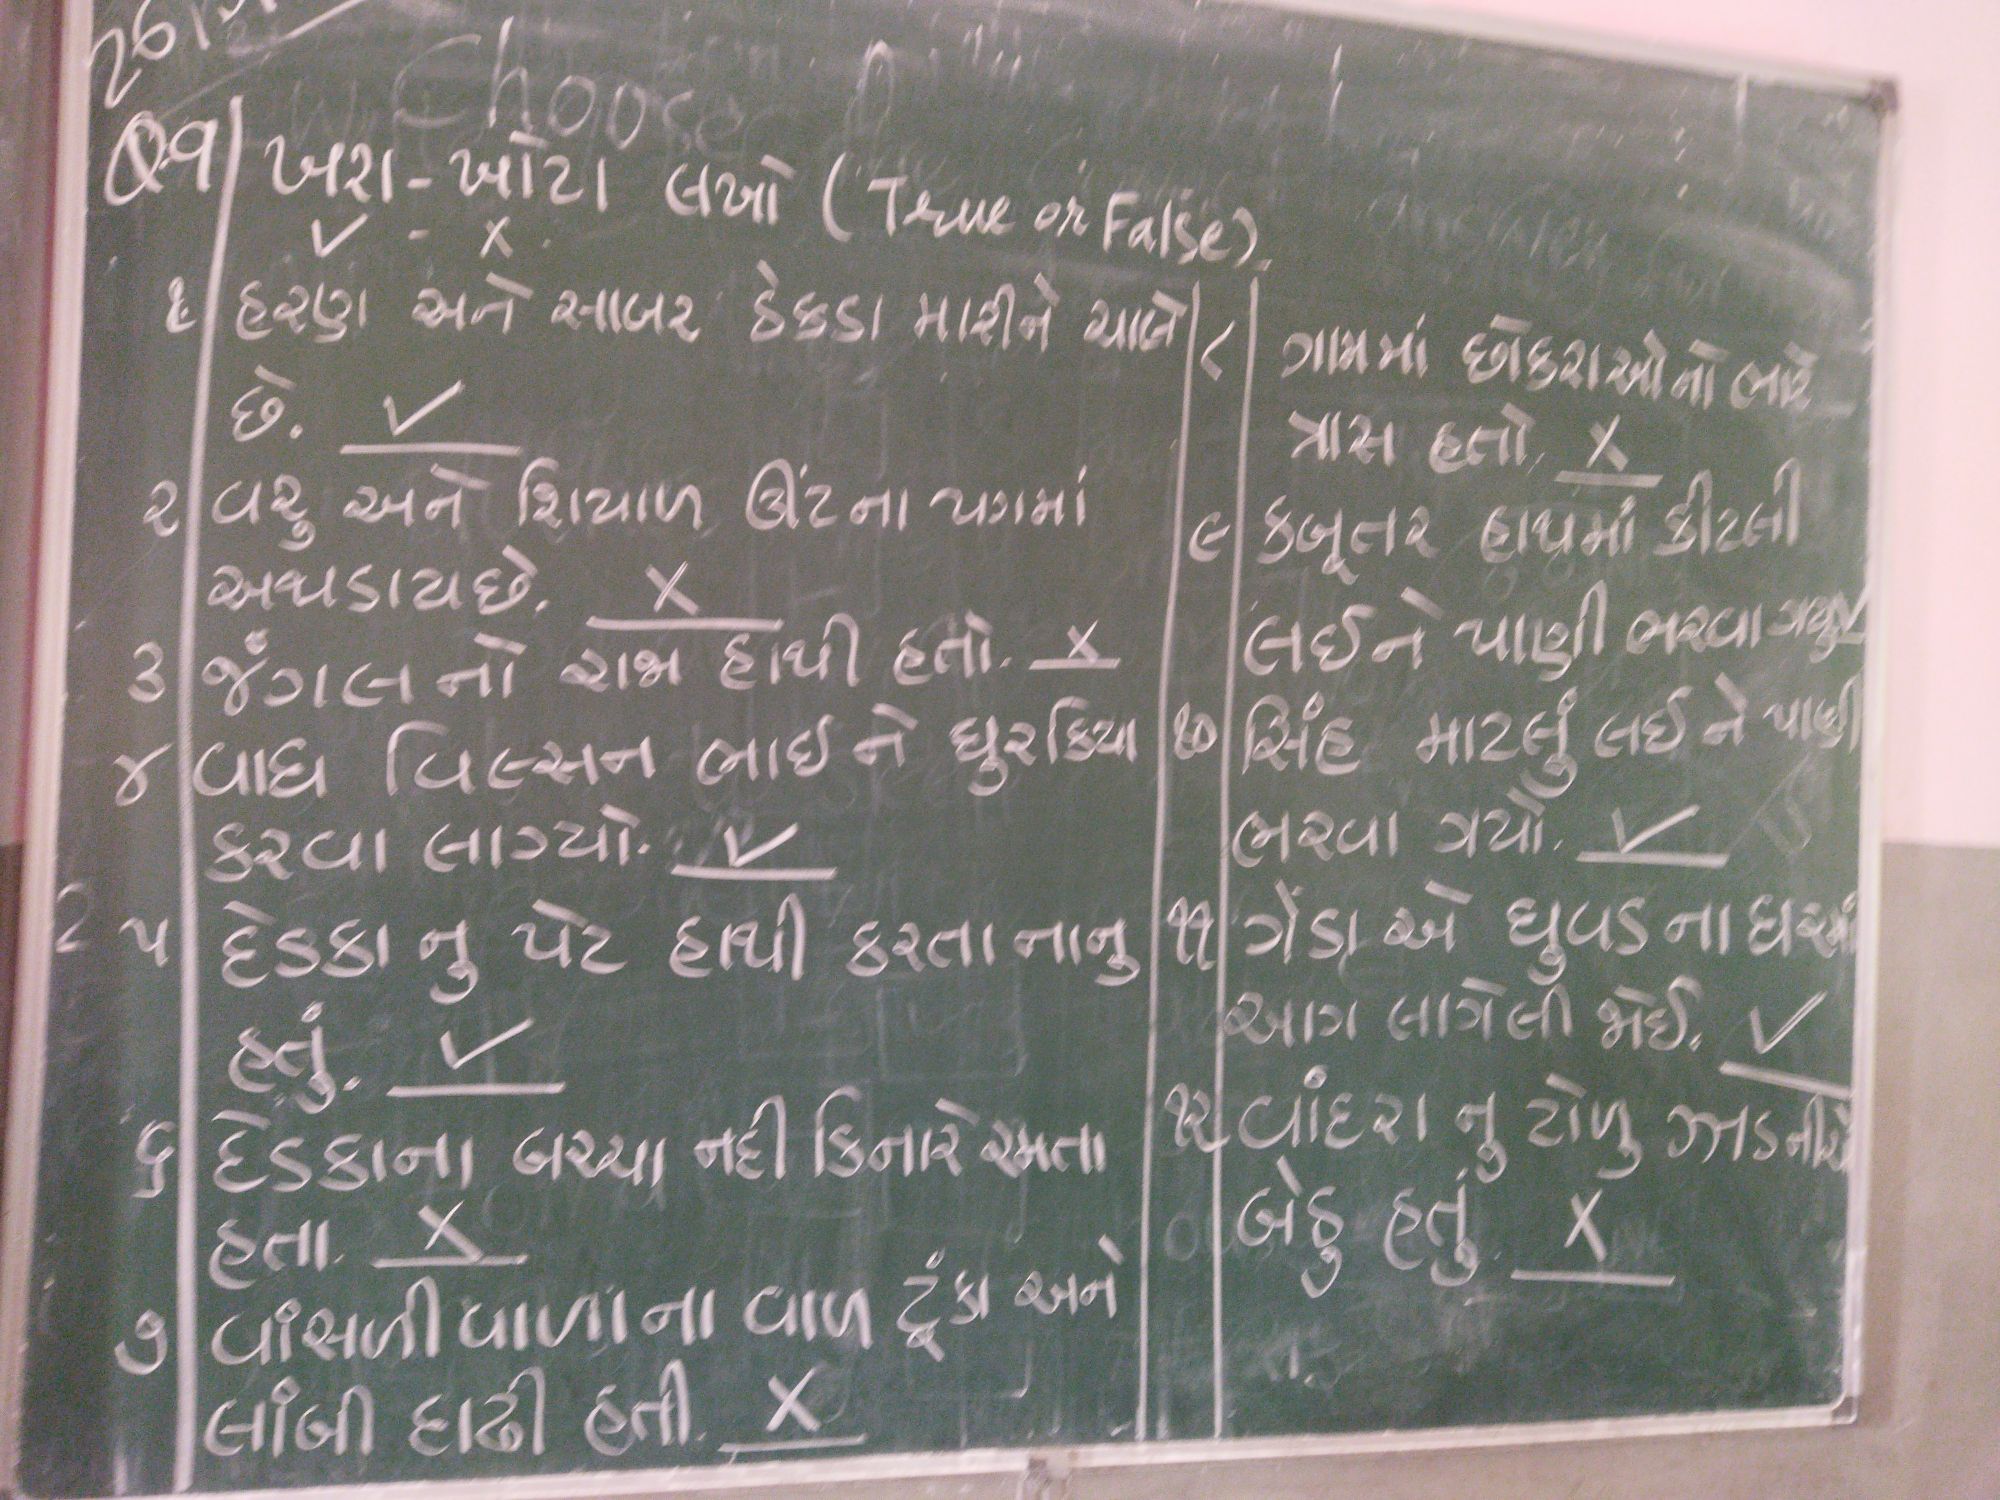 Choose
Q.૧ ખરા-ખોટા લખો (True or False).
✓ - X.
૧ હરણ અને સાબર ઠેકડા મારીને ચાલે
છે. ✓
૨ વરુ અને શિયાળ ઊંટના પગમાં
અથડાય છે. X
૩ જંગલનો રાજા હાથી હતો. X
૪ વાઘ વિલ્સન ભાઈને ઘુરકિયા
કરવા લાગ્યો. ✓
૫ દેડકાનુ પેટ હાથી કરતા નાનુ
હતું. ✓
૬ દેડકાના બચ્ચા નદી કિનારે રમતા
હતા. X
૭ વાંસળીવાળાના વાળ ટૂંકા અને
લાંબી દાઢી હતી. X
૮ ગામમાં છોકરાઓનો ભારે
ત્રાસ હતો. X
૯ કબૂતર હાથમાં કીટલી
લઈને પાણી ભરવા ગયુ ✓
૧૦ સિંહ માટલું લઈને પાણી
ભરવા ગયો. ✓
૧૧ ગેંડા એ ઘુવડના ઘરમાં
આગ લાગેલી જોઈ. ✓
૧૨ વાંદરાનુ ટોળુ ઝાડ નીચે
બેઠુ હતું X